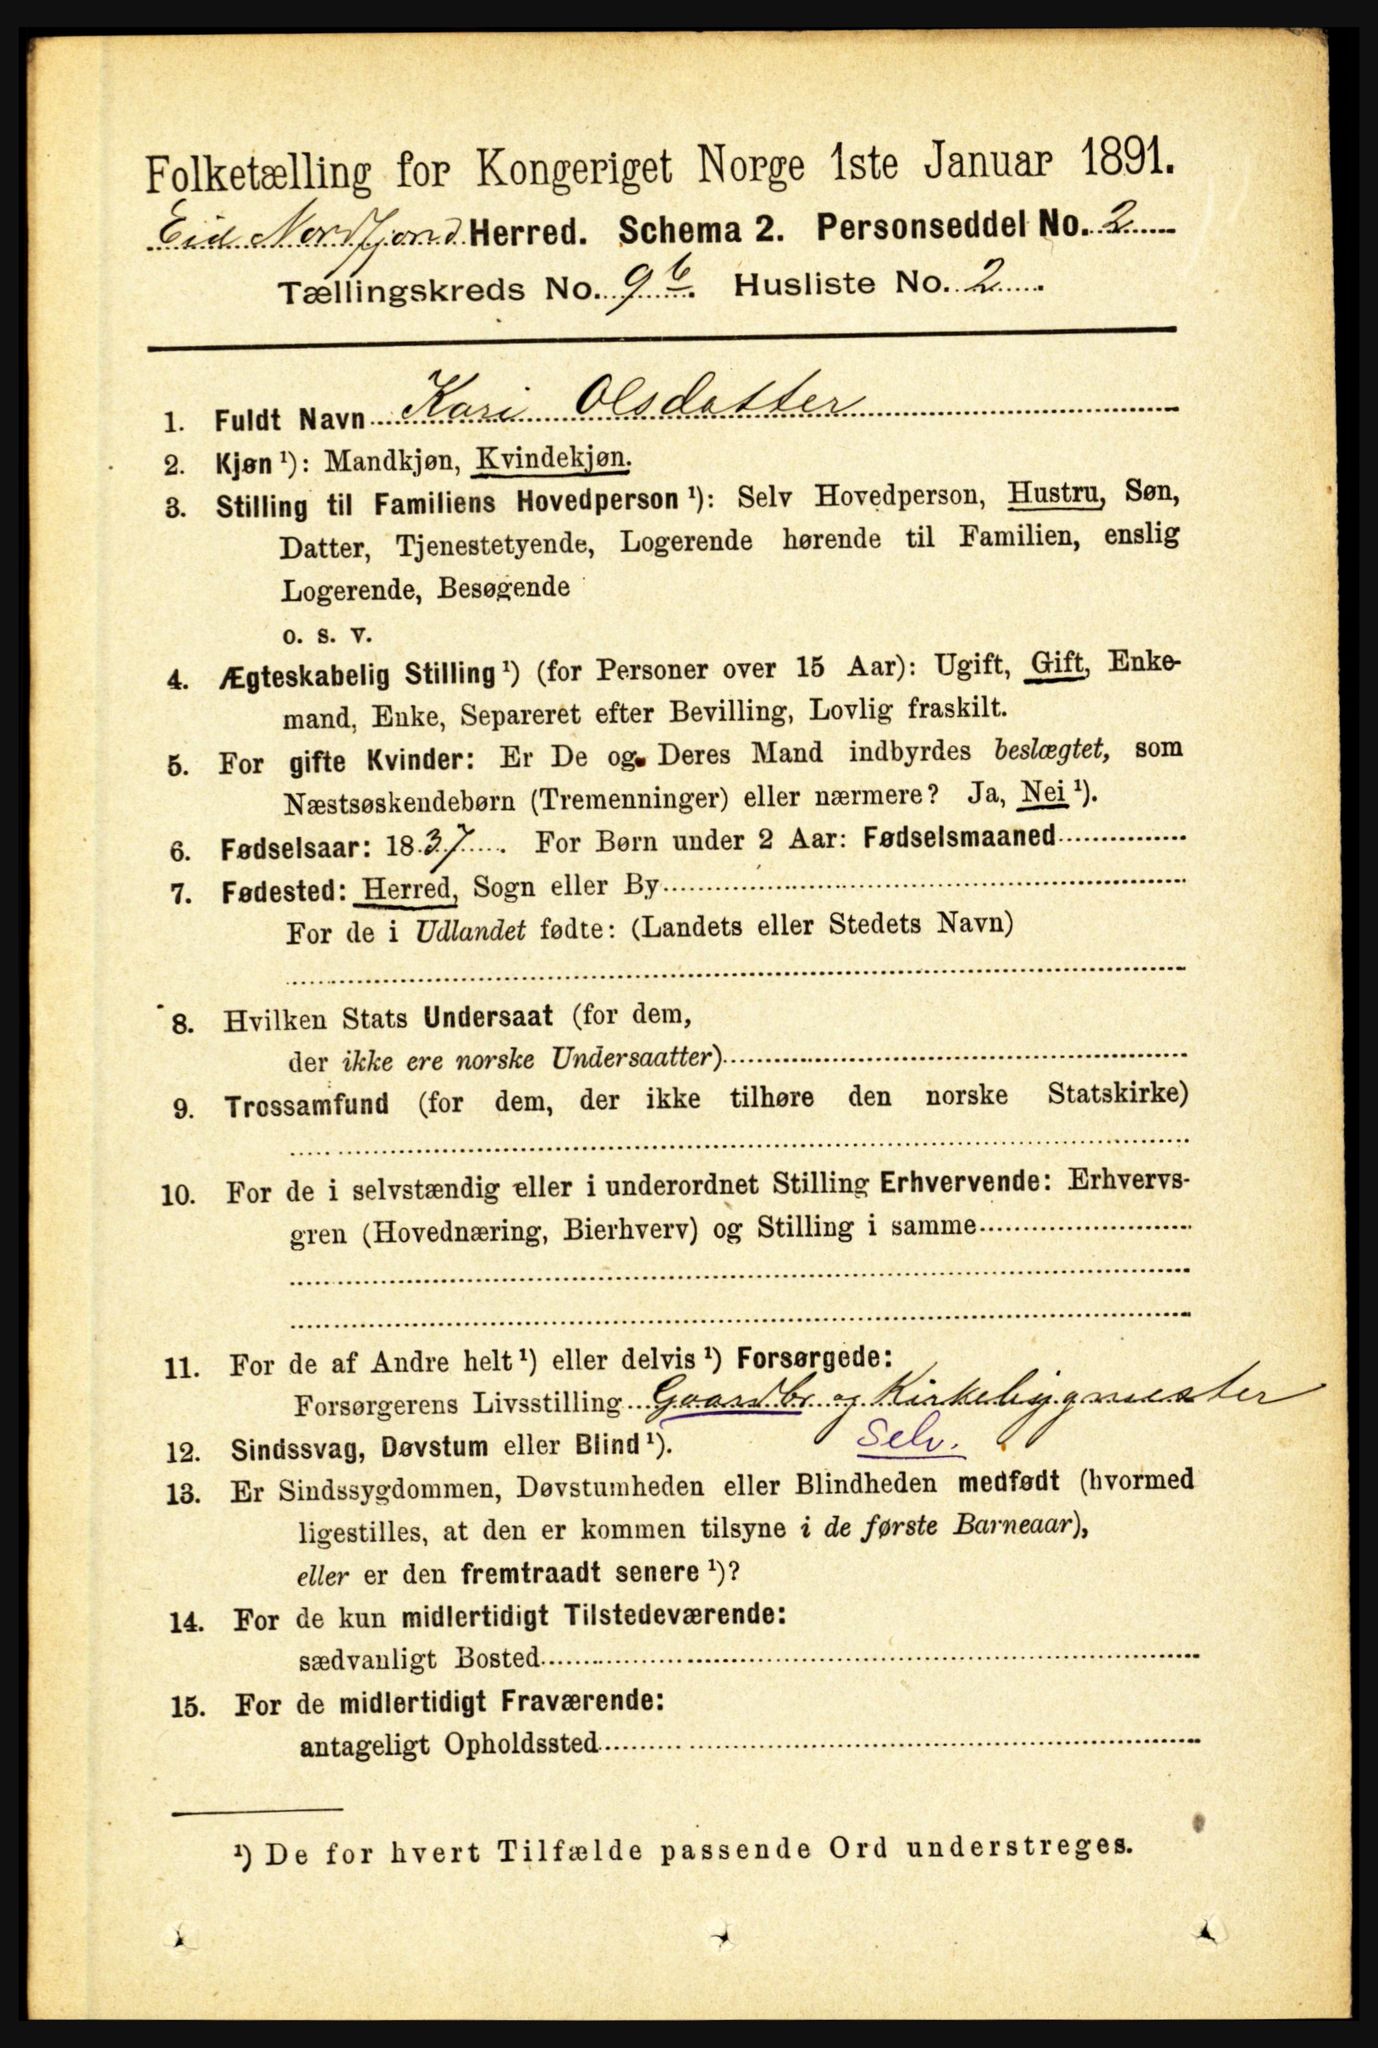 Folketælling for Kongeriget Norge 1ste Januar 1891.
Eid Nordfjord Herred. Schema 2. Personseddel No. 2
Tællingskreds No. 9 b. Husliste No. 2
1. Fuldt Navn Kari Olsdatter
2. Kjøn ¹): Mandkjøn, Kvindekjøn.
3. Stilling til Familiens Hovedperson ¹): Selv Hovedperson, Hustru, Søn,
Datter, Tjenestetyende, Logerende hørende til Familien, enslig
Logerende, Besøgende
o. s. v.
4. Ægteskabelig Stilling ¹) (for Personer over 15 Aar): Ugift, Gift, Enke-
mand, Enke, Separeret efter Bevilling, Lovlig fraskilt.
5. For gifte Kvinder: Er De og Deres Mand indbyrdes beslægtet, som
Næstsøskendebørn (Tremenninger) eller nærmere? Ja, Nei ¹).
6. Fødselsaar: 1837. For Børn under 2 Aar: Fødselsmaaned
7. Fødested: Herred, Sogn eller By
For de i Udlandet fødte: (Landets eller Stedets Navn)
8. Hvilken Stats Undersaat (for dem,
der ikke ere norske Undersaatter)
9. Trossamfund (for dem, der ikke tilhøre den norske Statskirke)
10. For de i selvstændig eller i underordnet Stilling Erhvervende: Erhvervs-
gren (Hovednæring, Bierhverv) og Stilling i samme
11. For de af Andre helt ¹) eller delvis ¹) Forsørgede:
Forsørgerens Livsstilling Gaardbr. og Kirkebygmester
12. Sindssvag, Døvstum eller Blind ¹). Selv.
13. Er Sindssygdommen, Døvstumheden eller Blindheden medfødt (hvormed
ligestilles, at den er kommen tilsyne i de første Barneaar),
eller er den fremtraadt senere ¹)?
14. For de kun midlertidigt Tilstedeværende:
sædvanligt Bosted
15. For de midlertidigt Fraværende:
antageligt Opholdssted
¹) De for hvert Tilfælde passende Ord understreges.